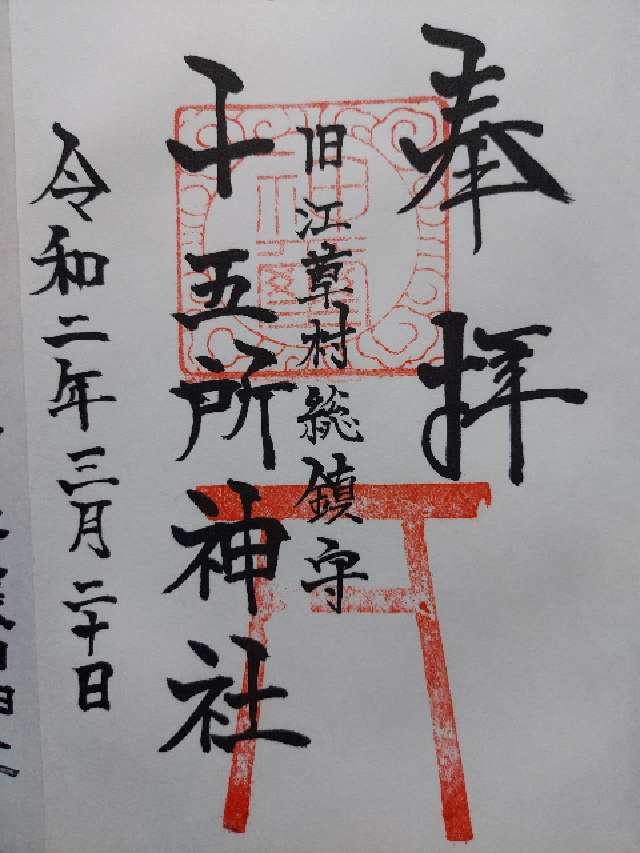 奉拝
旧江草村総鎮守
十五所神社
令和二年三月二十日